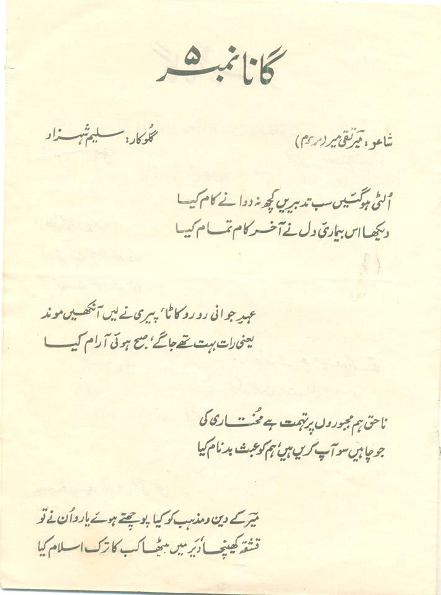 گانا نمبر ۵
شاعر: میر تقی میر (مرحوم)
گلوکار: سلیم شہزاد
اُلٹی ہوگئیں سب تدبیریں کچھ نہ دوا نے کام کیا
دیکھا اس بیماریِ دل نے آخر کام تمام کیا
عہدِ جوانی رو رو کاٹا، پیری نے لیں آنکھیں موند
یعنی رات بہت تھے جاگے، صبح ہوئی آرام کیا
ناحق ہم مجبوروں پر تہمت ہے مختاری کی
جو چاہیں سو آپ کریں ہیں، ہم کو عبث بدنام کیا
میر کے دین و مذہب کو کیا پوچھتے ہوئے یارو اُن نے تو
قشقہ کھینچا، دَیر میں بیٹھا کب کا ترک اسلام کیا